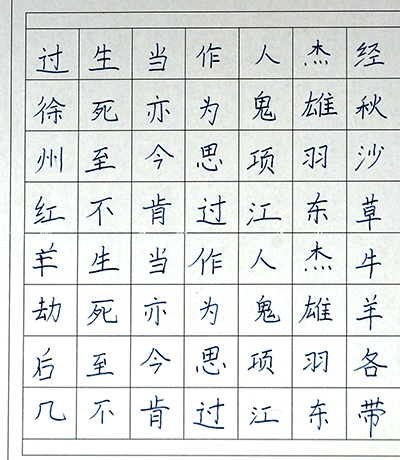 过生当作人杰经
徐死亦为鬼雄秋
州至今思项羽沙
红不肯过江东草
羊生当作人杰牛
劫死亦为鬼雄羊
后至今思项羽各
几不肯过江东带